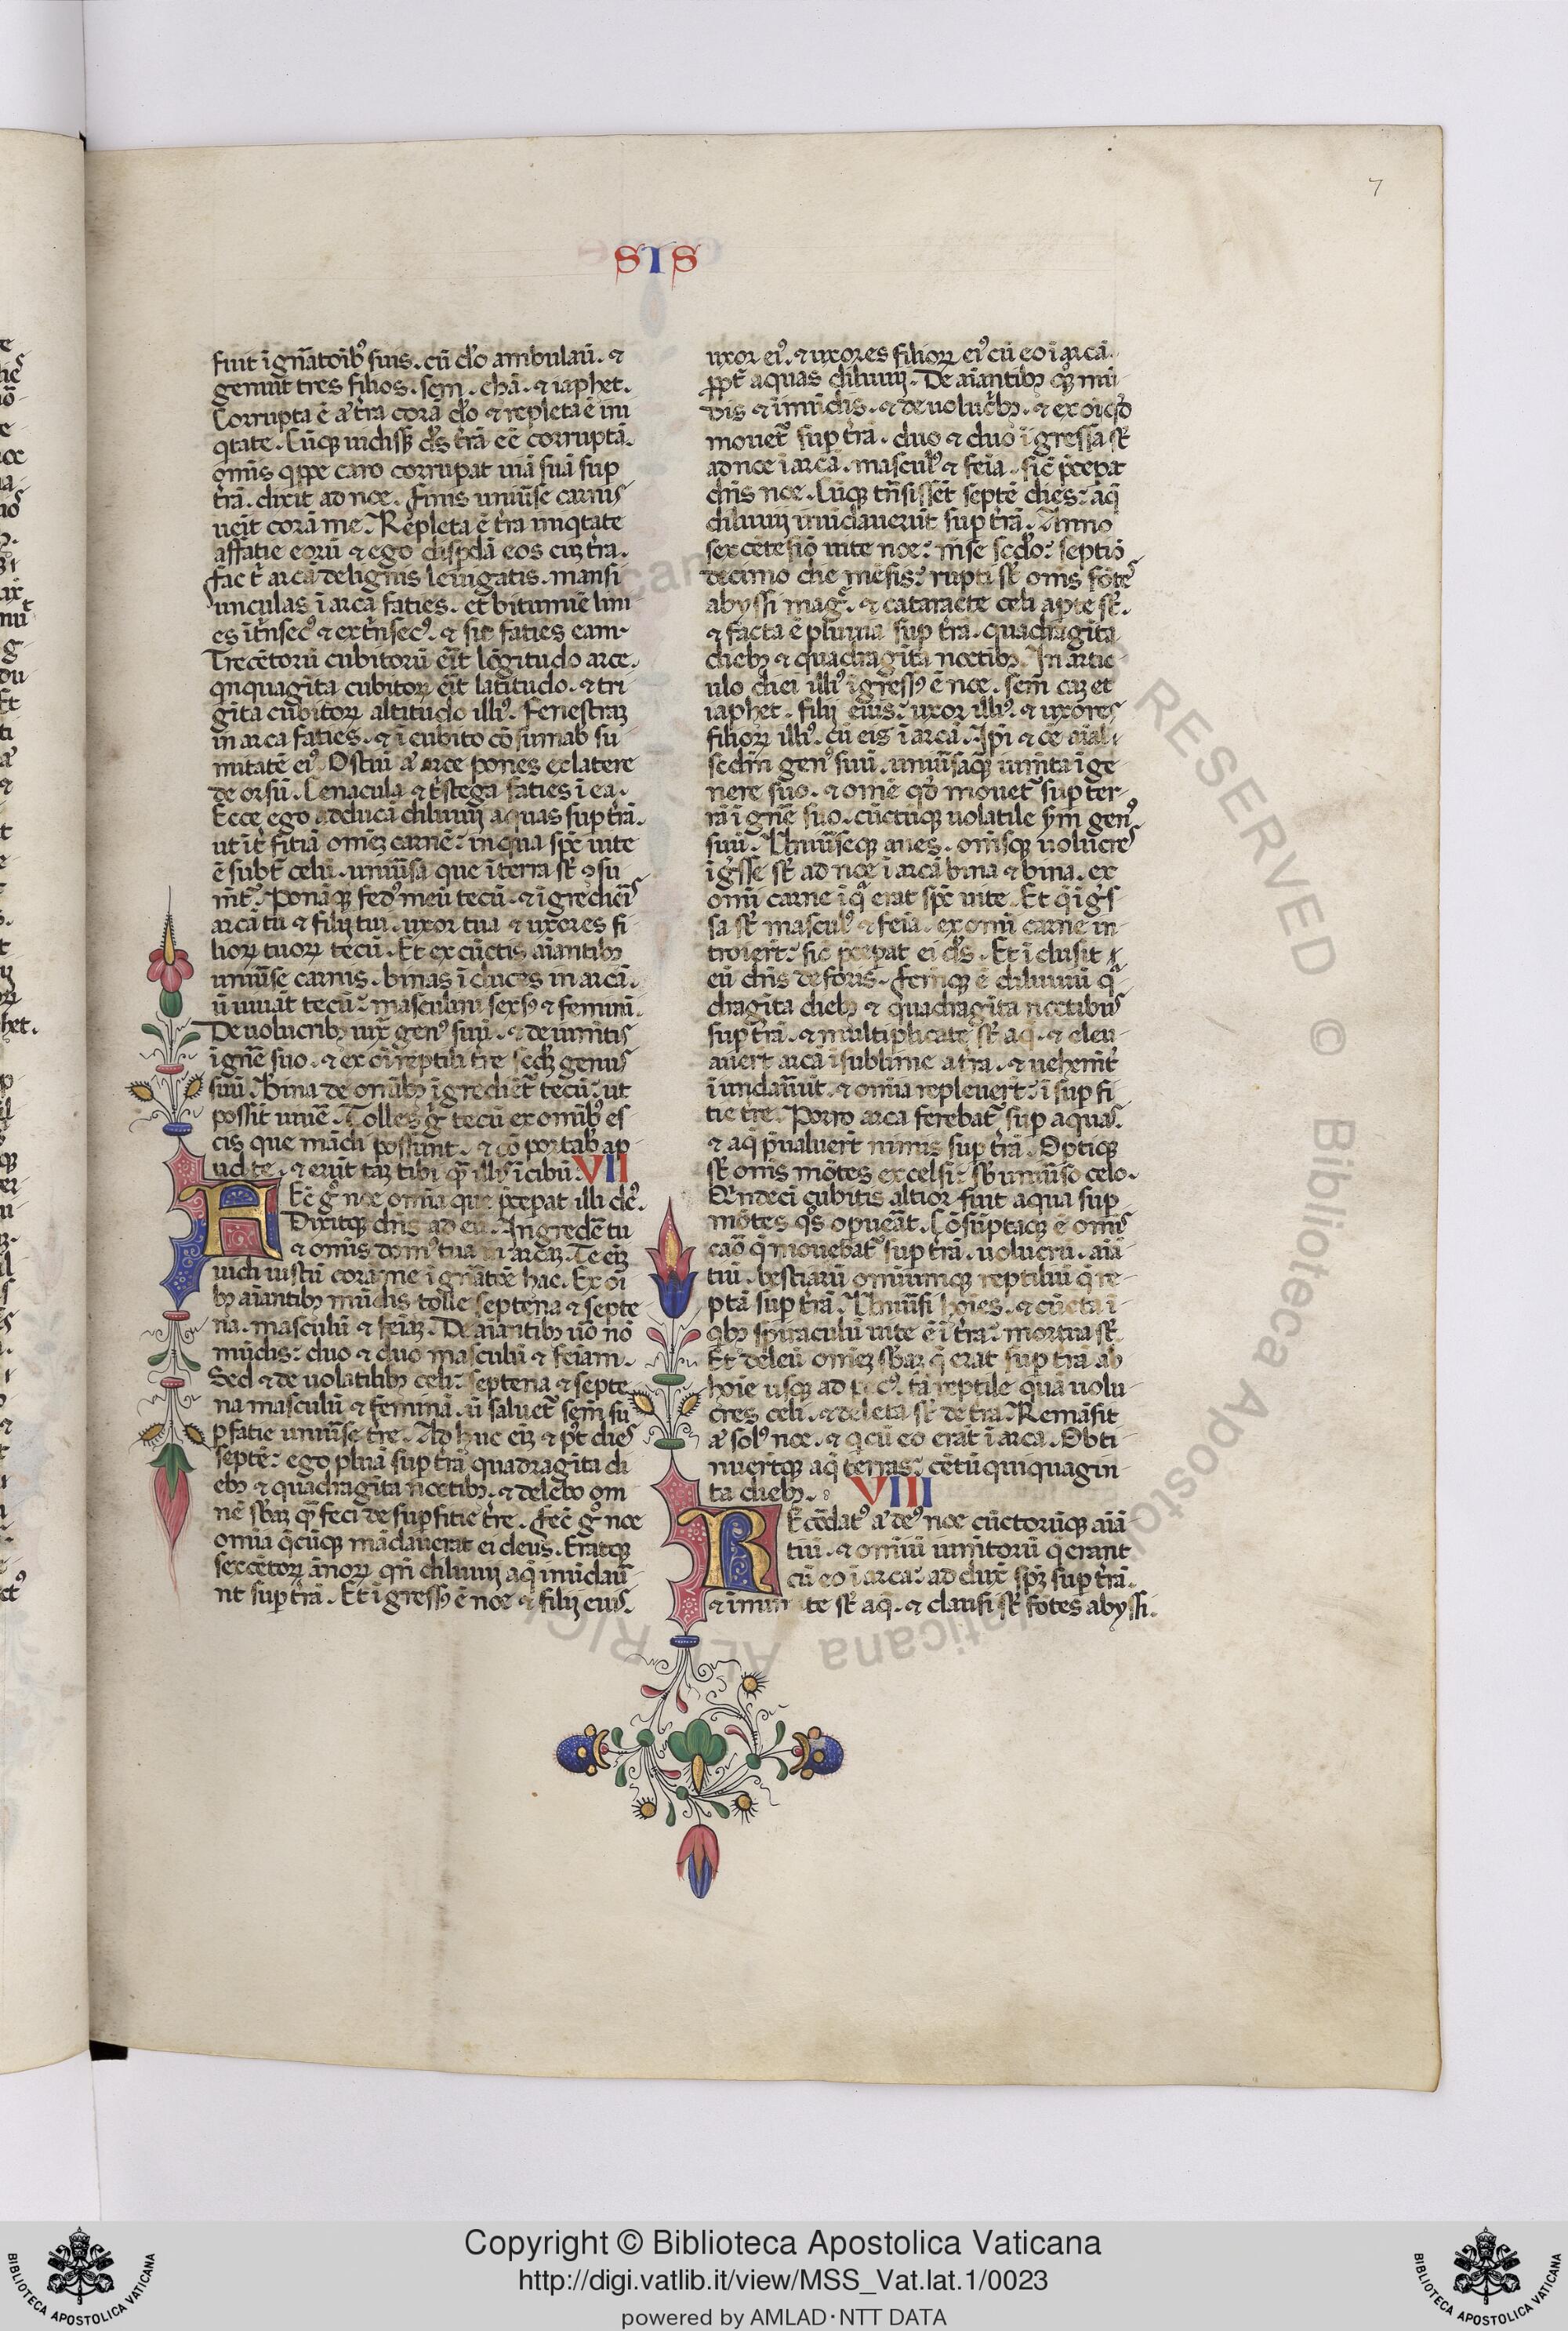 7
SIS
fuit ī gn̄atoīb⁹ suis. cū d̄o ambulaū. ⁊
genuit tres filios. sem. chā. ⁊ iaphet.
Corrupta ē a᷑ t̄ra corā d̄o ⁊ repleta ē ini
q̄tate. Cūq̨ uidisse d̄s t̄rā eē corruptā.
om̄is q̄ppe caro corruperat uiā suā sup
t̄rā. dixit ad noe. finis uniūse carnis
ueīt corā me. Repleta ē t̄ra iniq̄tate
a facie eorū ⁊ ego disp̄dā eos cuꝫ t̄ra.
fac t̄ arcā de lignis leuigatis. mansi
unculas ī arca facies. et bitumīe lini
es īt̄nsec⁹ ⁊ ext̄nsec⁹. ⁊ sic facies eam.
Trecētorū cubitorū erīt lōgitudo arce.
qn̄quagīta cubitoꝝ erīt latitudo. ⁊ tri
gīta cubitoꝝ altitudo illi⁹. Fenestraꝫ
in arca facies. ⁊ ī cubito cōsumab su
mitatē ei⁹. Ostiū a᷑ arce pones ex latere
de orsū. Cenacula ⁊ t̄stega facies ī ea.
Ecce ego adducā diluuij aquas sup t̄rā.
ut īt̄ficiā om̄eꝫ carnē: in qua sp̄c uite
ē subt̄ celū. uniūsa que ī terra sūt ꝯsu
mt᷑. Ponāq̨ fed⁹ meū tecū. ⁊ īgredieīs
arcā tu ⁊ filij tui. uxor tua ⁊ uxores fi
lioꝝ tuoꝝ tecū. Et ex cūctis aīantibꝫ
uniūse carnis. binas īduces in arcā.
ū uiuāt tecū: masculini sex⁹ ⁊ femini.
De uolucribꝫ iux̄ gen⁹ suū. ⁊ de iumētis
ī gn̄e suo. ⁊ ex oī reptili t̄re secdꝫ genus
suū. Bina de om̄ibꝫ īgrediēt᷑ tecū: ut
possīt uiuē. Tolles g̊ tecū ex om̄ib⁹ es
cis que mādi possunt. ⁊ cōportab ap
ud te. ⁊ erūt taꝫ tibi q̄ illis ī cibū. VII
Fēc g̊ noe om̄ia que p̄cepat illi de⁹.
Dixitq̨ dn̄s ad eū. Ingredēe tu
⁊ om̄is dom⁹ tua in arcaꝫ. Te eīꝫ
uidi iustū corā me ī gn̄atōe hac. Ex oī
bꝫ aīantibꝫ mūdis tolle septena ⁊ septe
na. masculū ⁊ feīaꝫ. De aīantibꝫ ūo nō
mūdis: duo ⁊ duo masculū ⁊ feīam.
Sed ⁊ de uolatilibꝫ celi: septena ⁊ septe
na masculū ⁊ feminā. ū saluet᷑ sem̄ su
p faciē uniūse t̄re. Ad huc eīꝫ ⁊ p᷒t dies
septē: ego pluā sup t̄rā quadragīta di
ebꝫ ⁊ quadragīta noctibꝫ. ⁊ delebo om
nē sb̄aꝫ q̄ feci de sup̄ficie t̄re. Fēc g̊ noe
om̄ia q̄cūq̨ mādauerat ei deus. Eratq̨
sexcētoꝝ ānoꝝ qn̄ diluuij aq̄ inūdaū
nt sup t̄rā. Et īgress⁹ ē noe ⁊ filij eius.
uxor ei⁹. ⁊ uxores filioꝝ ei⁹ cū eo ī arcā.
ꝓpt̄ aquas diluuij. De aīantibꝫ q̨ mū
dis ⁊ īmūdis. ⁊ de uolucrbꝫ. ⁊ ex oī qd̄
mouet᷑ sup t̄rā. duo ⁊ duo īgressa sūt
ad noe ī arcā. mascul⁹ ⁊ feīa. sic p̄cepat
dn̄s noe. Cūq̨ t̄nsissēt septē dies: aq̄
diluuij inūdauerūt sup t̄rā. Anno
sexcētesīo uite noe: mēse scd̄o: septīo
decimo die mēsis: rupti sūt om̄s fōtes
abyssi maḡ. ⁊ cataracte celi apte sūt.
⁊ facta ē pluuia sup t̄rā. quadragīta
diebꝫ ⁊ quadragīta noctibꝫ. In artic
ulo diei illi⁹ īgress⁹ ē noe. sem̄ caꝫ et
iaphet. filij eius: uxor illi⁹. ⁊ uxores
filioꝝ illi⁹. cū eis ī arcā. Ipi ⁊ oē aīal
secdm̄ gen⁹ suū. uniūsaq̨ iumēta ī ge
nere suo. ⁊ omē qd̄ mouet᷑ sup ter-
rā ī gn̄e suo. cūctūq̨ uolatile sm̄ gen⁹
suū. Uniūseq̨ aues. om̄sq̨ uolucres
īgsse sūt ad noe ī arcā bina ⁊ bina. ex
om̄i carne ī q̄ erat sp̄c uite. Et q̄ īgs
sa sūt mascul⁹ ⁊ feīa. ex om̄i carne in
troiert̄: sic p̄cepat ei d̄s. Et īclusit
eū dn̄s de foris. Fc̄mq̨ ē diluuiū q̄
dragīta diebꝫ ⁊ quadragīta noctibus
sup t̄rā. ⁊ multiplicate sūt aq̄. ⁊ eleu
auert̄ arcā ī sublime a t̄ra. ⁊ uehemt̄
īundaūut. ⁊ om̄ia repleuert̄: ī supfi
cie t̄re. Porro arca ferebat᷑ sup aquas.
⁊ aq̄ p̄ualuert̄ nimis sup t̄rā. Optiq̨
sūt om̄s mōtes excelsi: sb̄ uniūso celo.
Qn̄deci cubitis altior fuit aqua sup
mōtes q̊s opueāt. Cōsūptaq̨ ē om̄is
caō q̄ mouebat᷑ sup t̄rā. uolucrū. aīā
tiū. bestiarū omiumq̨ reptiliū q̄ re-
ptā sup t̄rā. Uniūsi hoīes. ⁊ cūcta ī
qbꝫ spiraculū uite ē ī t̄ra: mortua sūt.
Et deleū om̄eꝫ sb̄aꝫ q̄ erat sup t̄rā ab
hoīe usq̨ ad pec⁹. tā reptile quā uolu
cres celi. ⁊ deleta sūt de t̄ra. Remāsit
a᷑ sol⁹ noe. ⁊ q cū eo erāt ī arca. Obti
nuertq̨ aq̄ terras: cētū quiquagin
ta diebꝫ. VIII
Rēcordat⁹ a᷑ de⁹ noe cūctorūq̨ aīā
tiū. ⁊ omiū iumtorū q erant
cū eo ī arca: ad dux̄ sp̄ꝫ sup t̄rā.
⁊ īminute sūt aq̄. ⁊ clausi sūt fōtes abyssi.
Copyright © Biblioteca Apostolica Vaticana
http://digi.vatlib.it/view/MSS_Vat.lat.1/0023
powered by AMLAD·NTT DATA
BIBLIOTECA APOSTOLICA VATICANA
BIBLIOTECA APOSTOLICA VATICANA